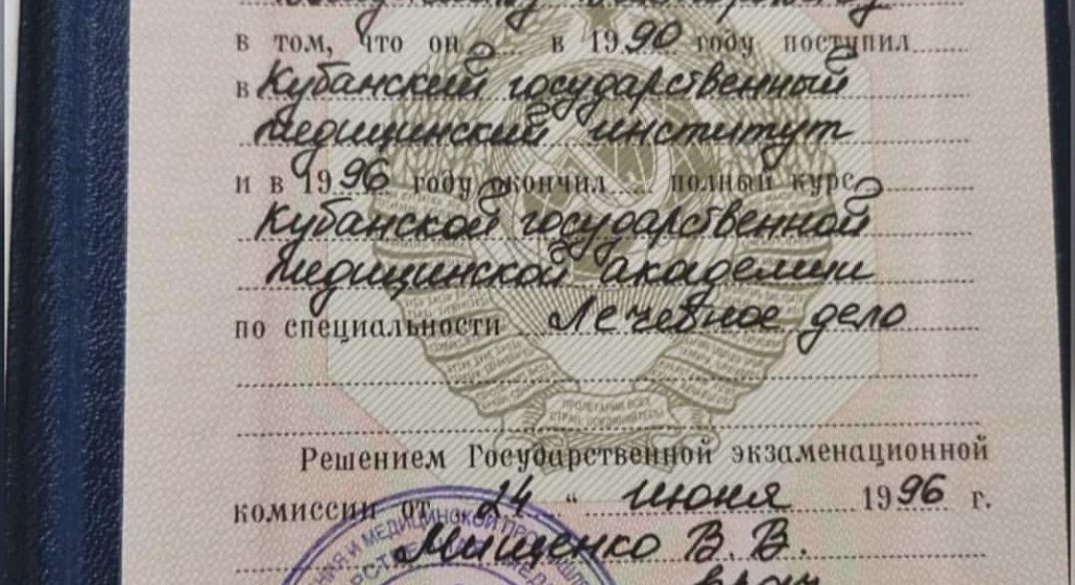 в том, что он в 1990 году поступил
в Кубанский государственный
медицинский институт
и в 1996 году окончил полный курс
Кубанской государственной
медицинской академии
по специальности Лечебное дело
ПРОЛЕТАРИИ ВСЕХ
СТРАН, СОЕДИНЯЙТЕСЬ
Решением Государственной экзаменационной
комиссии от „ 24 “ июня 1996 г.
И МЕДИЦИНСКОЙ
Мищенко В. В.
врач